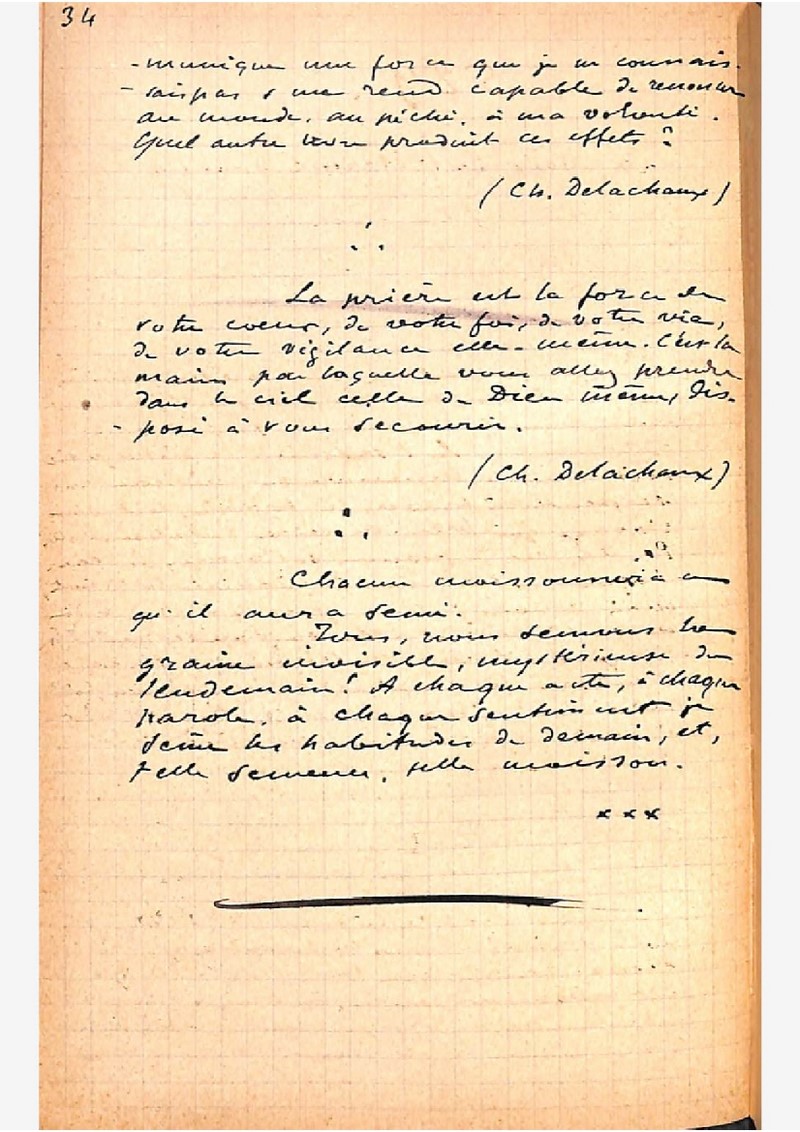 34
-munique une force que je ne connais-
-sais pas & me rend capable de renoncer
au monde, au péché, à ma volonté.
Quel autre livre produit ces effets ?
(Ch. Delachaux)
La prière est la force de
votre coeur, de votre foi, de votre vie,
de votre vigilance elle-même. C'est la
main par laquelle vous allez prendre
dans le ciel celle de Dieu même, dis-
-posé à vous secourir.
(Ch. Delachaux)
Chacun moissonnera ce
qu'il aura semé.
Tous, nous semons la
graine invisible, mystérieuse du
lendemain! A chaque acte, à chaque
parole, à chaque sentiment je
sème les habitudes de demain, et,
telle semence, telle moisson.
x x x